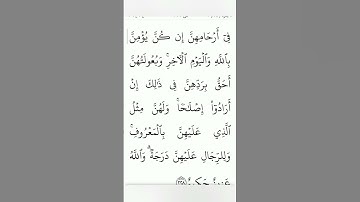 فِىٓ أَرْحَامِهِنَّ إِن كُنَّ يُؤْمِنَّ
بِٱللَّهِ وَٱلْيَوْمِ ٱلْـَٔاخِرِ ۚ وَبُعُولَتُهُنَّ
أَحَقُّ بِرَدِّهِنَّ فِى ذَٰلِكَ إِنْ
أَرَادُوٓا۟ إِصْلَـٰحًا ۚ وَلَهُنَّ مِثْلُ
ٱلَّذِى عَلَيْهِنَّ بِٱلْمَعْرُوفِ ۚ
وَلِلرِّجَالِ عَلَيْهِنَّ دَرَجَةٌ ۗ وَٱللَّهُ
عَزِيزٌ حَكِيمٌ ٢٢٨